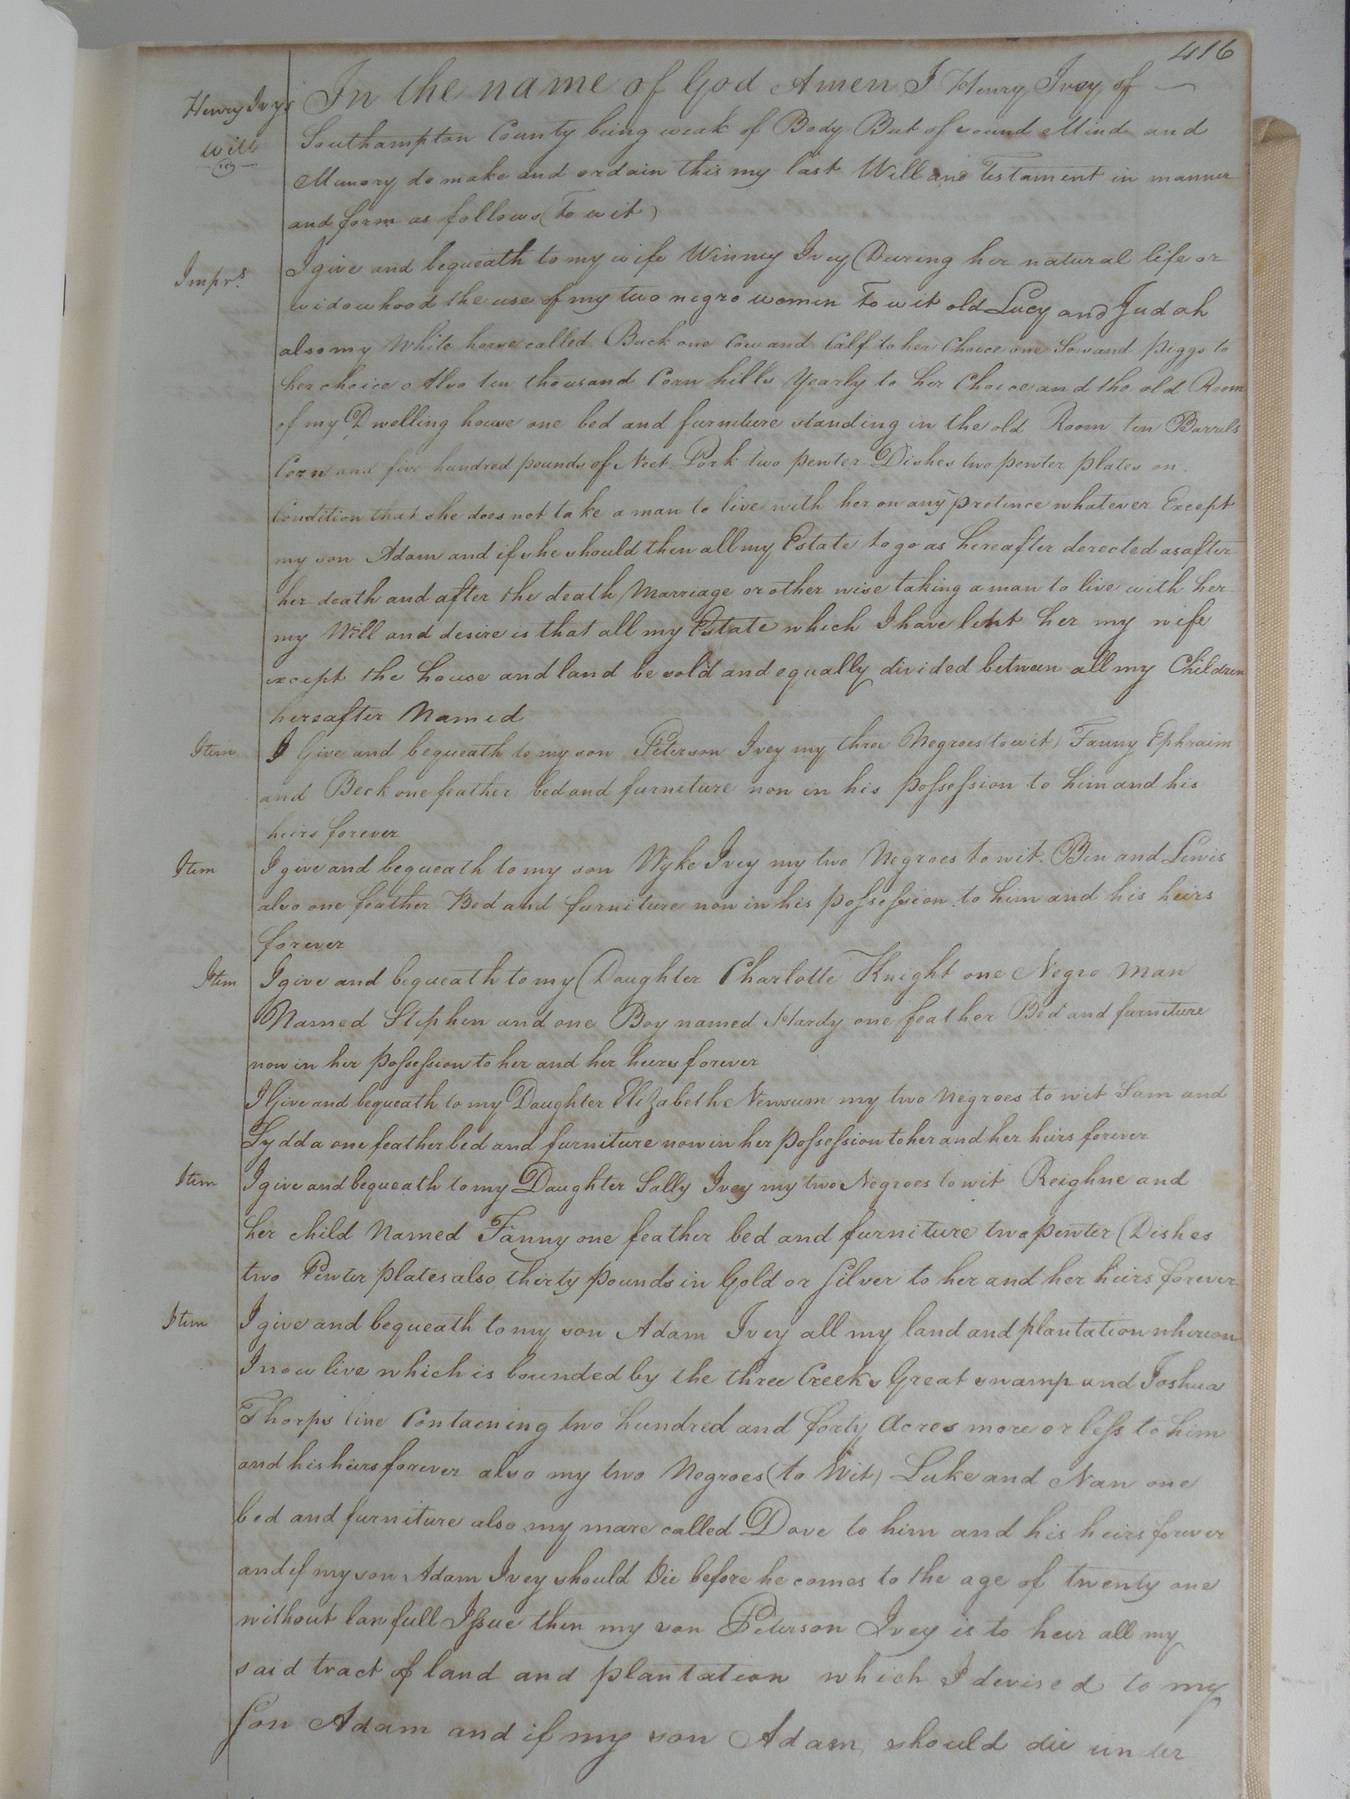 416
Henry Ivys
will
In the name of God Amen I Henry Ivey of
Southampton County being weak of Body But of sound Mind and
Memory do make and ordain this my last Will and Testament in manner
and form as follows (To wit)
Impr.s
I give and bequeath to my wife Winney Ivey During her natural life or
widowhood the use of my two negro women To wit old Lucy and Judah
also my White horse called Buck one Cow and Calf to her Choice one Sow and piggs to
her choice Also ten thousand Corn hills Yearly to her Choice and the old Room
of my Dwelling house one bed and furniture standing in the old Room ten Barrels
Corn and five hundred pounds of Neet Pork two pewter Dishes two pewter plates on
Condition that she does not take a man to live with her on any pretence whatever Except
my son Adam and if she should then all my Estate to go as hereafter derected as after
her death and after the death Marriage or other wise taking a man to live with her
my Will and desire is that all my Estate which I have lent her my wife
except the house and land be sold and equally divided between all my Children
hereafter Named
Item
I Give and bequeath to my son Peterson Ivey my three Negroes (to wit) Fanny Ephraim
and Beck one feather bed and furniture now in his possession to him and his
heirs forever
Item
I give and bequeath to my son Wyke Ivey my two Negroes to wit. Ben and Lewis
also one feather Bed and furniture now in his possession to him and his heirs
forever
Item
I give and bequeath to my Daughter Charlotte Knight one Negro Man
Named Stephen and one Boy named Hardy one feather Bed and furniture
now in her possession to her and her heirs forever
I Give and bequeath to my Daughter Elizabeth Newsum my two Negroes to wit Sam and
Lydda one feather bed and furniture now in her possession to her and her heirs forever
Item
I give and bequeath to my Daughter Sally Ivey my two Negroes to wit Reighne and
her child Named Fanny one feather bed and furniture two pewter Dishes
two Pewter plates also thirty pounds in Gold or Silver to her and her heirs forever
Item
I give and bequeath to my son Adam Ivey all my land and plantation whereon
I now live which is bounded by the three Creeks Great swamp and Joshua
Thorps line Contaening two hundred and forty Acres more or less to him
and his heirs forever also my two Negroes (to Wit) Luke and Nan one
bed and furniture also my mare called Dove to him and his heirs forever
and if my son Adam Ivey should Die before he comes to the age of twenty one
without lawfull Issue then my son Peterson Ivey is to heir all my
said tract of land and plantation which I devised to my
Son Adam and if my son Adam should die under